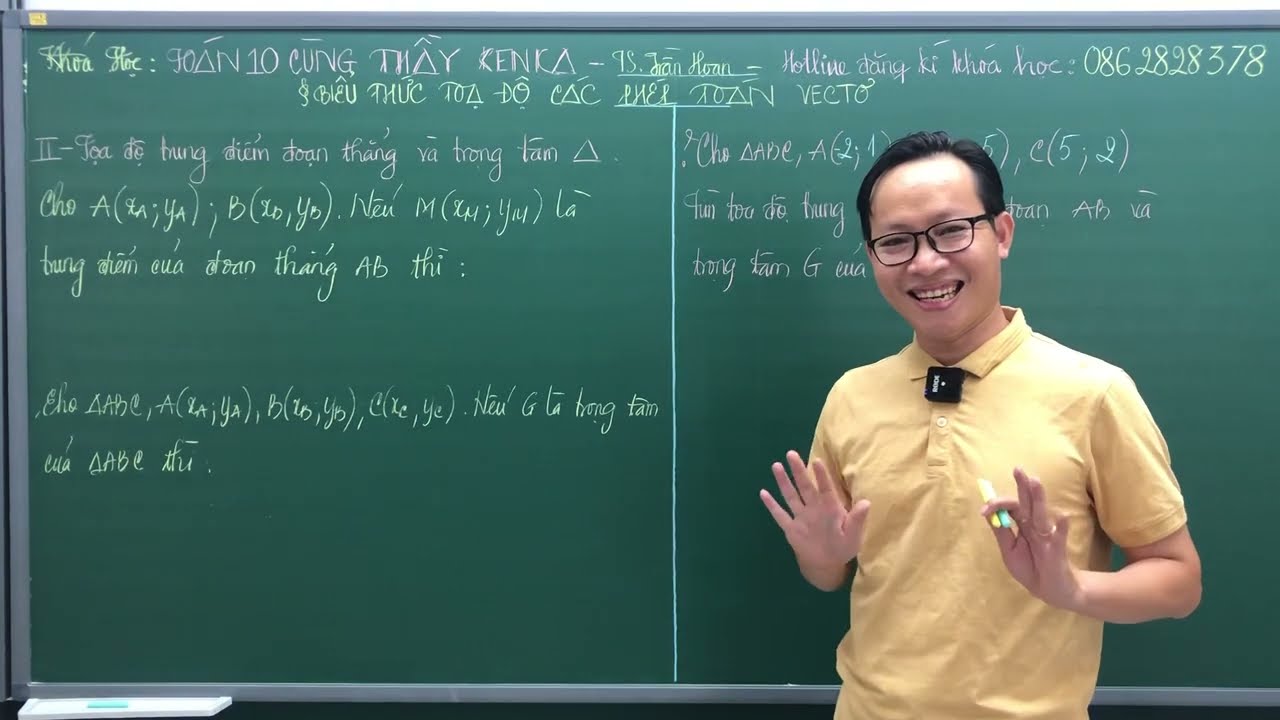 Khoá Học: TOÁN 10 CÙNG THẦY KENKA - TS. Trần Hoan - Hotline đăng kí khoá học: 0862828378
§ BIỂU THỨC TOẠ ĐỘ CÁC PHÉP TOÁN VECTƠ
II - Tọa độ trung điểm đoạn thẳng và trọng tâm Δ.
Cho A(xA; yA); B(xB, yB). Nếu M(xM; yM) là
trung điểm của đoạn thẳng AB thì:
Cho ΔABC, A(xA; yA), B(xB, yB), C(xC, yC). Nếu G là trọng tâm
của ΔABC thì:
Cho ΔABC, A(-2; 1) 5), C(5; 2)
Tìm toạ độ trung đoạn AB và
trọng tâm G của
RODE